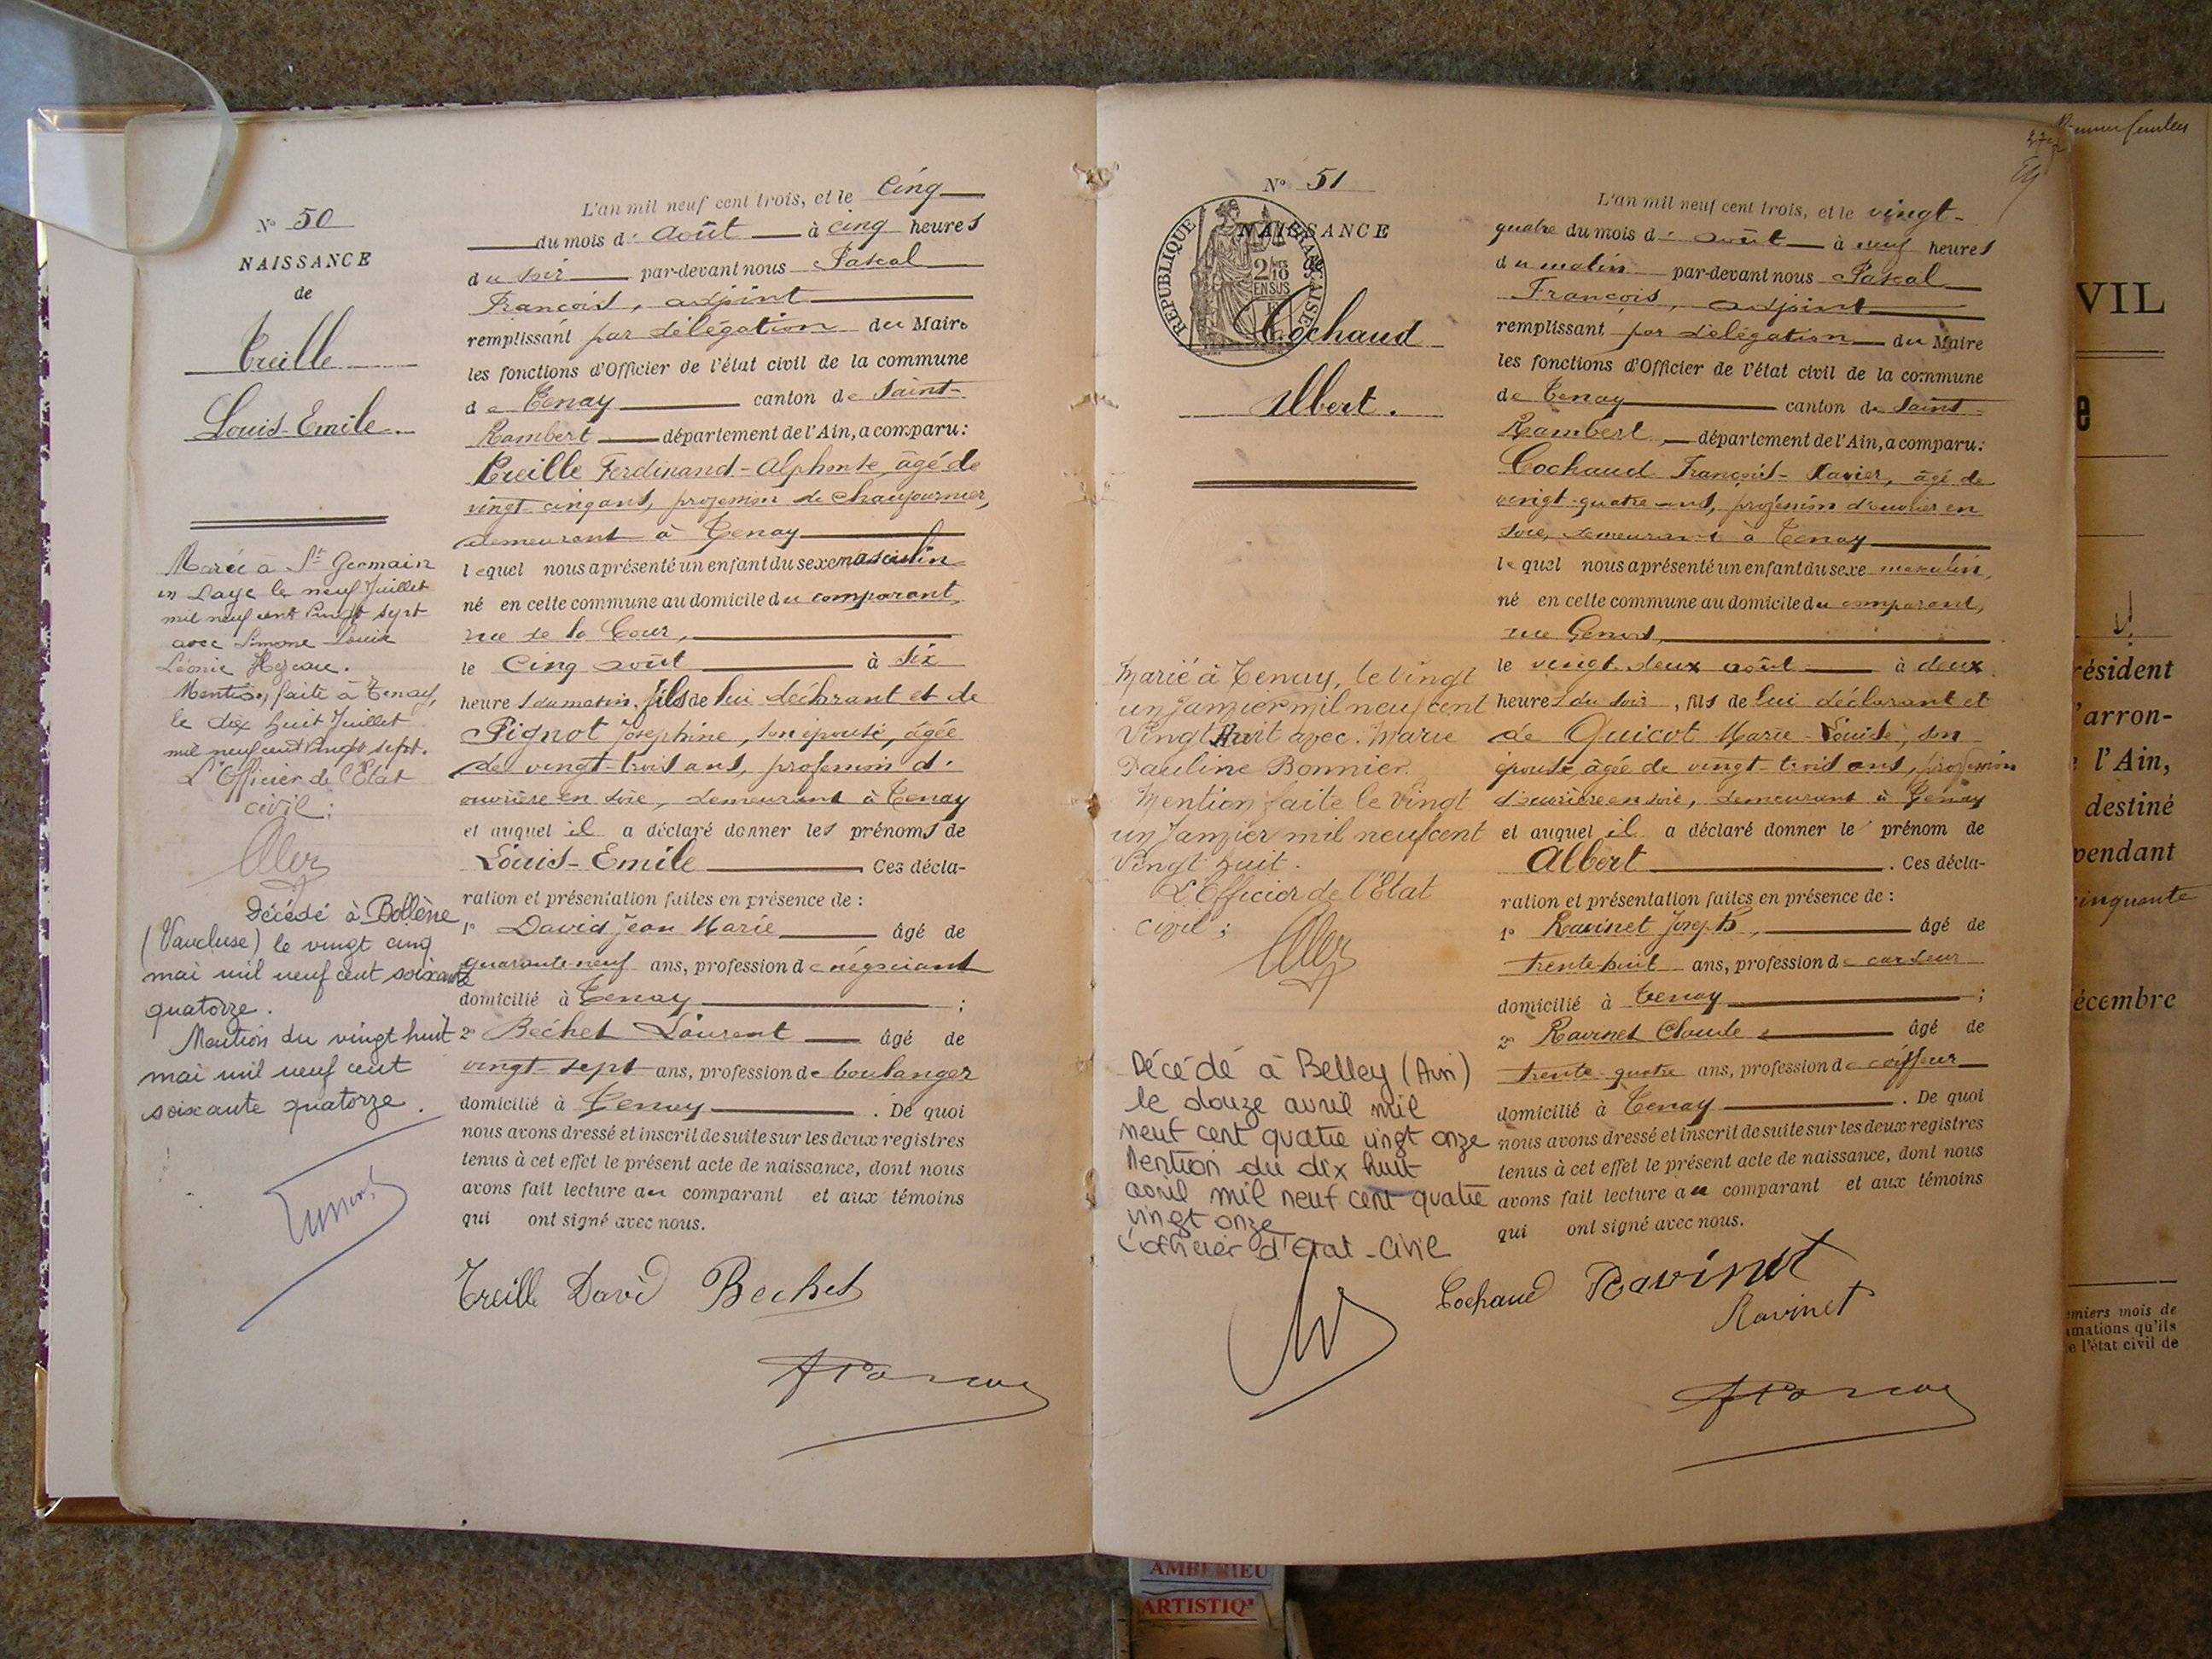 N° 50
NAISSANCE
de
Treille
Louis-Emile
Marié à St Germain
en Laye le neuf Juillet
mil neuf cent vingt sept
avec Simone Louise
Léonie
Mention faite à Tenay,
le dix huit Juillet
mil neuf cent vingt sept.
L'Officier de l'Etat
civil :
Décédé à Bollène
(Vaucluse) le vingt cinq
mai mil neuf cent soixante
quatorze.
Mention du vingt huit
mai mil neuf cent
soixante quatorze.
L'an mil neuf cent trois, et le cinq
du mois d' août à cinq heures
du soir par-devant nous Pascal
François, adjoint
remplissant par délégation du Maire
les fonctions d'Officier de l'état civil de la commune
de Tenay canton de Saint-
Rambert département de l'Ain, a comparu :
Treille Ferdinand-Alphonse, âgé de
vingt cinq ans, profession de chaufournier,
demeurant à Tenay
lequel nous a présenté un enfant du sexe masculin
né en cette commune au domicile du comparant,
rue de la Cour,
le cinq août à six
heures du matin, fils de lui déclarant et de
Pignot Joséphine, son épouse, âgée
de vingt-trois ans, profession d'
ouvrière en soie, demeurant à Tenay
et auquel il a déclaré donner les prénoms de
Louis-Emile Ces décla-
ration et présentation faites en présence de :
1° David Jean Marie âgé de
quarante-neuf ans, profession de négociant
domicilié à Tenay ;
2° Béchet Laurent âgé de
vingt-sept ans, profession de boulanger
domicilié à Tenay . De quoi
nous avons dressé et inscrit de suite sur les deux registres
tenus à cet effet le présent acte de naissance, dont nous
avons fait lecture au comparant et aux témoins
qui ont signé avec nous.
Treille David Bechet
N° 51
NAISSANCE
de
REPUBLIQUE FRANÇAISE
2/10 EN SUS
Cochaud
Albert.
Marié à Tenay, le vingt
un Janvier mil neuf cent
vingt huit avec Marie
Pauline Bonnier.
Mention faite le vingt
un Janvier mil neuf cent
vingt huit.
L'Officier de l'Etat
civil ;
Décédé à Belley (Ain)
le douze avril mil
neuf cent quatre vingt onze
Mention du dix huit
avril mil neuf cent quatre
vingt onze
L'officier d'Etat-Civil
L'an mil neuf cent trois, et le vingt-
quatre du mois d' août à neuf heures
du matin par-devant nous Pascal
François, adjoint
remplissant par délégation du Maire
les fonctions d'Officier de l'état civil de la commune
de Tenay canton de Saint-
Rambert département de l'Ain, a comparu :
Cochaud François-Xavier, âgé de
vingt-quatre ans, profession d'ouvrier en
soie, demeurant à Tenay
lequel nous a présenté un enfant du sexe masculin,
né en cette commune au domicile du comparant,
rue
le vingt-deux août à deux
heures du soir, fils de lui déclarant et
de Guicot Marie-Louise, son
épouse, âgée de vingt-trois ans, profession
d'ouvrière en soie, demeurant à Tenay
et auquel il a déclaré donner le prénom de
Albert . Ces décla-
ration et présentation faites en présence de :
1° Ravinet Joseph, âgé de
trente-huit ans, profession de cardeur
domicilié à Tenay ;
2° Ravinet Claude âgé de
trente-quatre ans, profession de coiffeur
domicilié à Tenay . De quoi
nous avons dressé et inscrit de suite sur les deux registres
tenus à cet effet le présent acte de naissance, dont nous
avons fait lecture au comparant et aux témoins
qui ont signé avec nous.
Cochaud Ravinet
Ravinet
VIL
e
résident
'arron-
l'Ain,
destiné
pendant
cinquante
écembre
emiers mois de
amations qu'ils
e l'état civil de
AMBERIEU
ARTISTIQ'